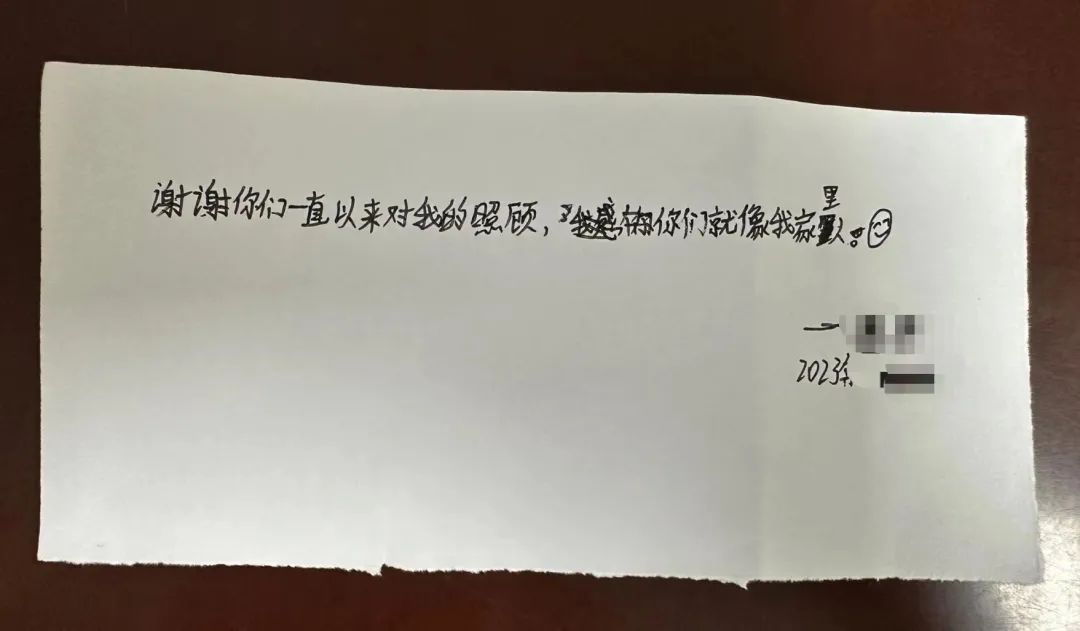 谢谢你们一直以来对我的照顾，你们就像我家里人。
2023年